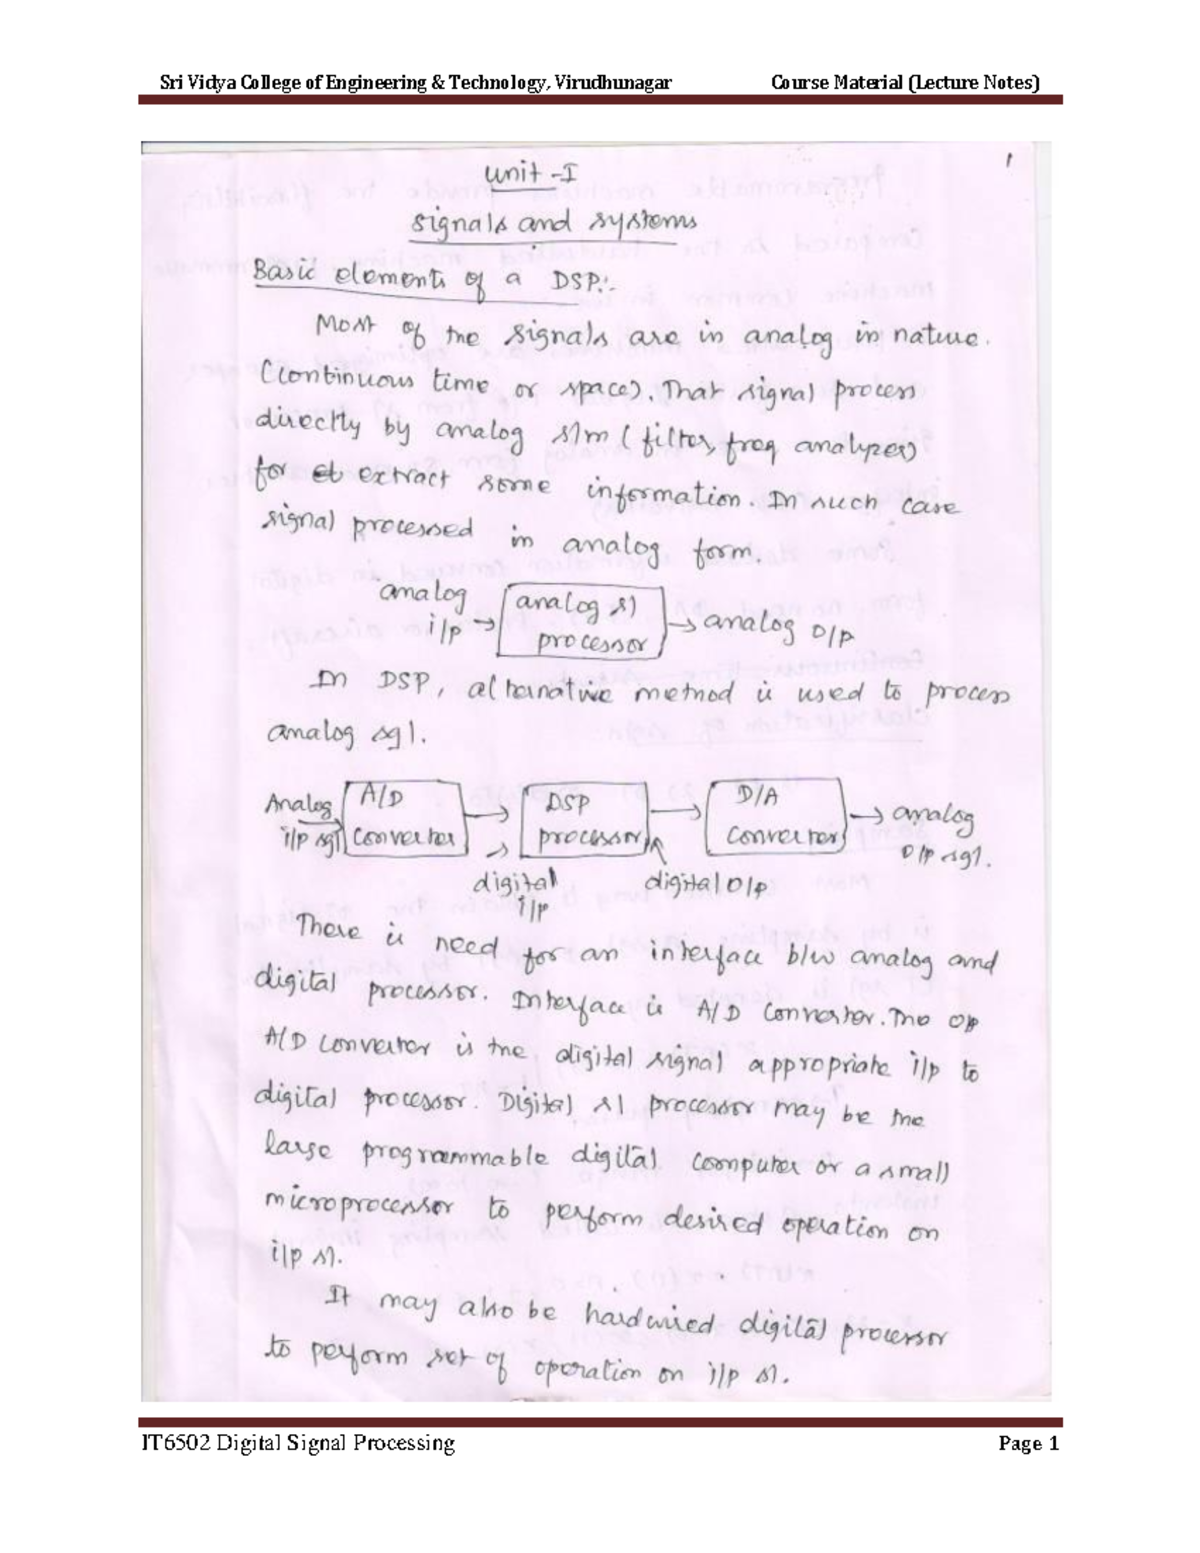 Sri Vidya College of Engineering & Technology, Virudhunagar Course Material (Lecture Notes)
1
Unit -I
Signals and systems
Basic elements of a DSP:-
Most of the signals are in analog in nature.
(continuous time or space). That signal process
directly by analog s/m (filter, freq analyzer)
for extract some information. In such case
signal processed in analog form.
analog i/p → analog sl processor → analog o/p
In DSP, alternative method is used to process
analog sgl.
Analog i/p sgl → A/D converter → DSP processor → D/A converter → analog o/p sgl.
→ digital i/p digital o/p
There is need for an interface b/w analog and
digital processor. Interface is A/D converter. The o/p
A/D converter is the digital signal appropriate i/p to
digital processor. Digital sl processor may be the
large programmable digital computer or a small
microprocessor to perform desired operation on
i/p sl.
It may also be hardwired digital processor
to perform set of operation on i/p sl.
IT6502 Digital Signal Processing Page 1